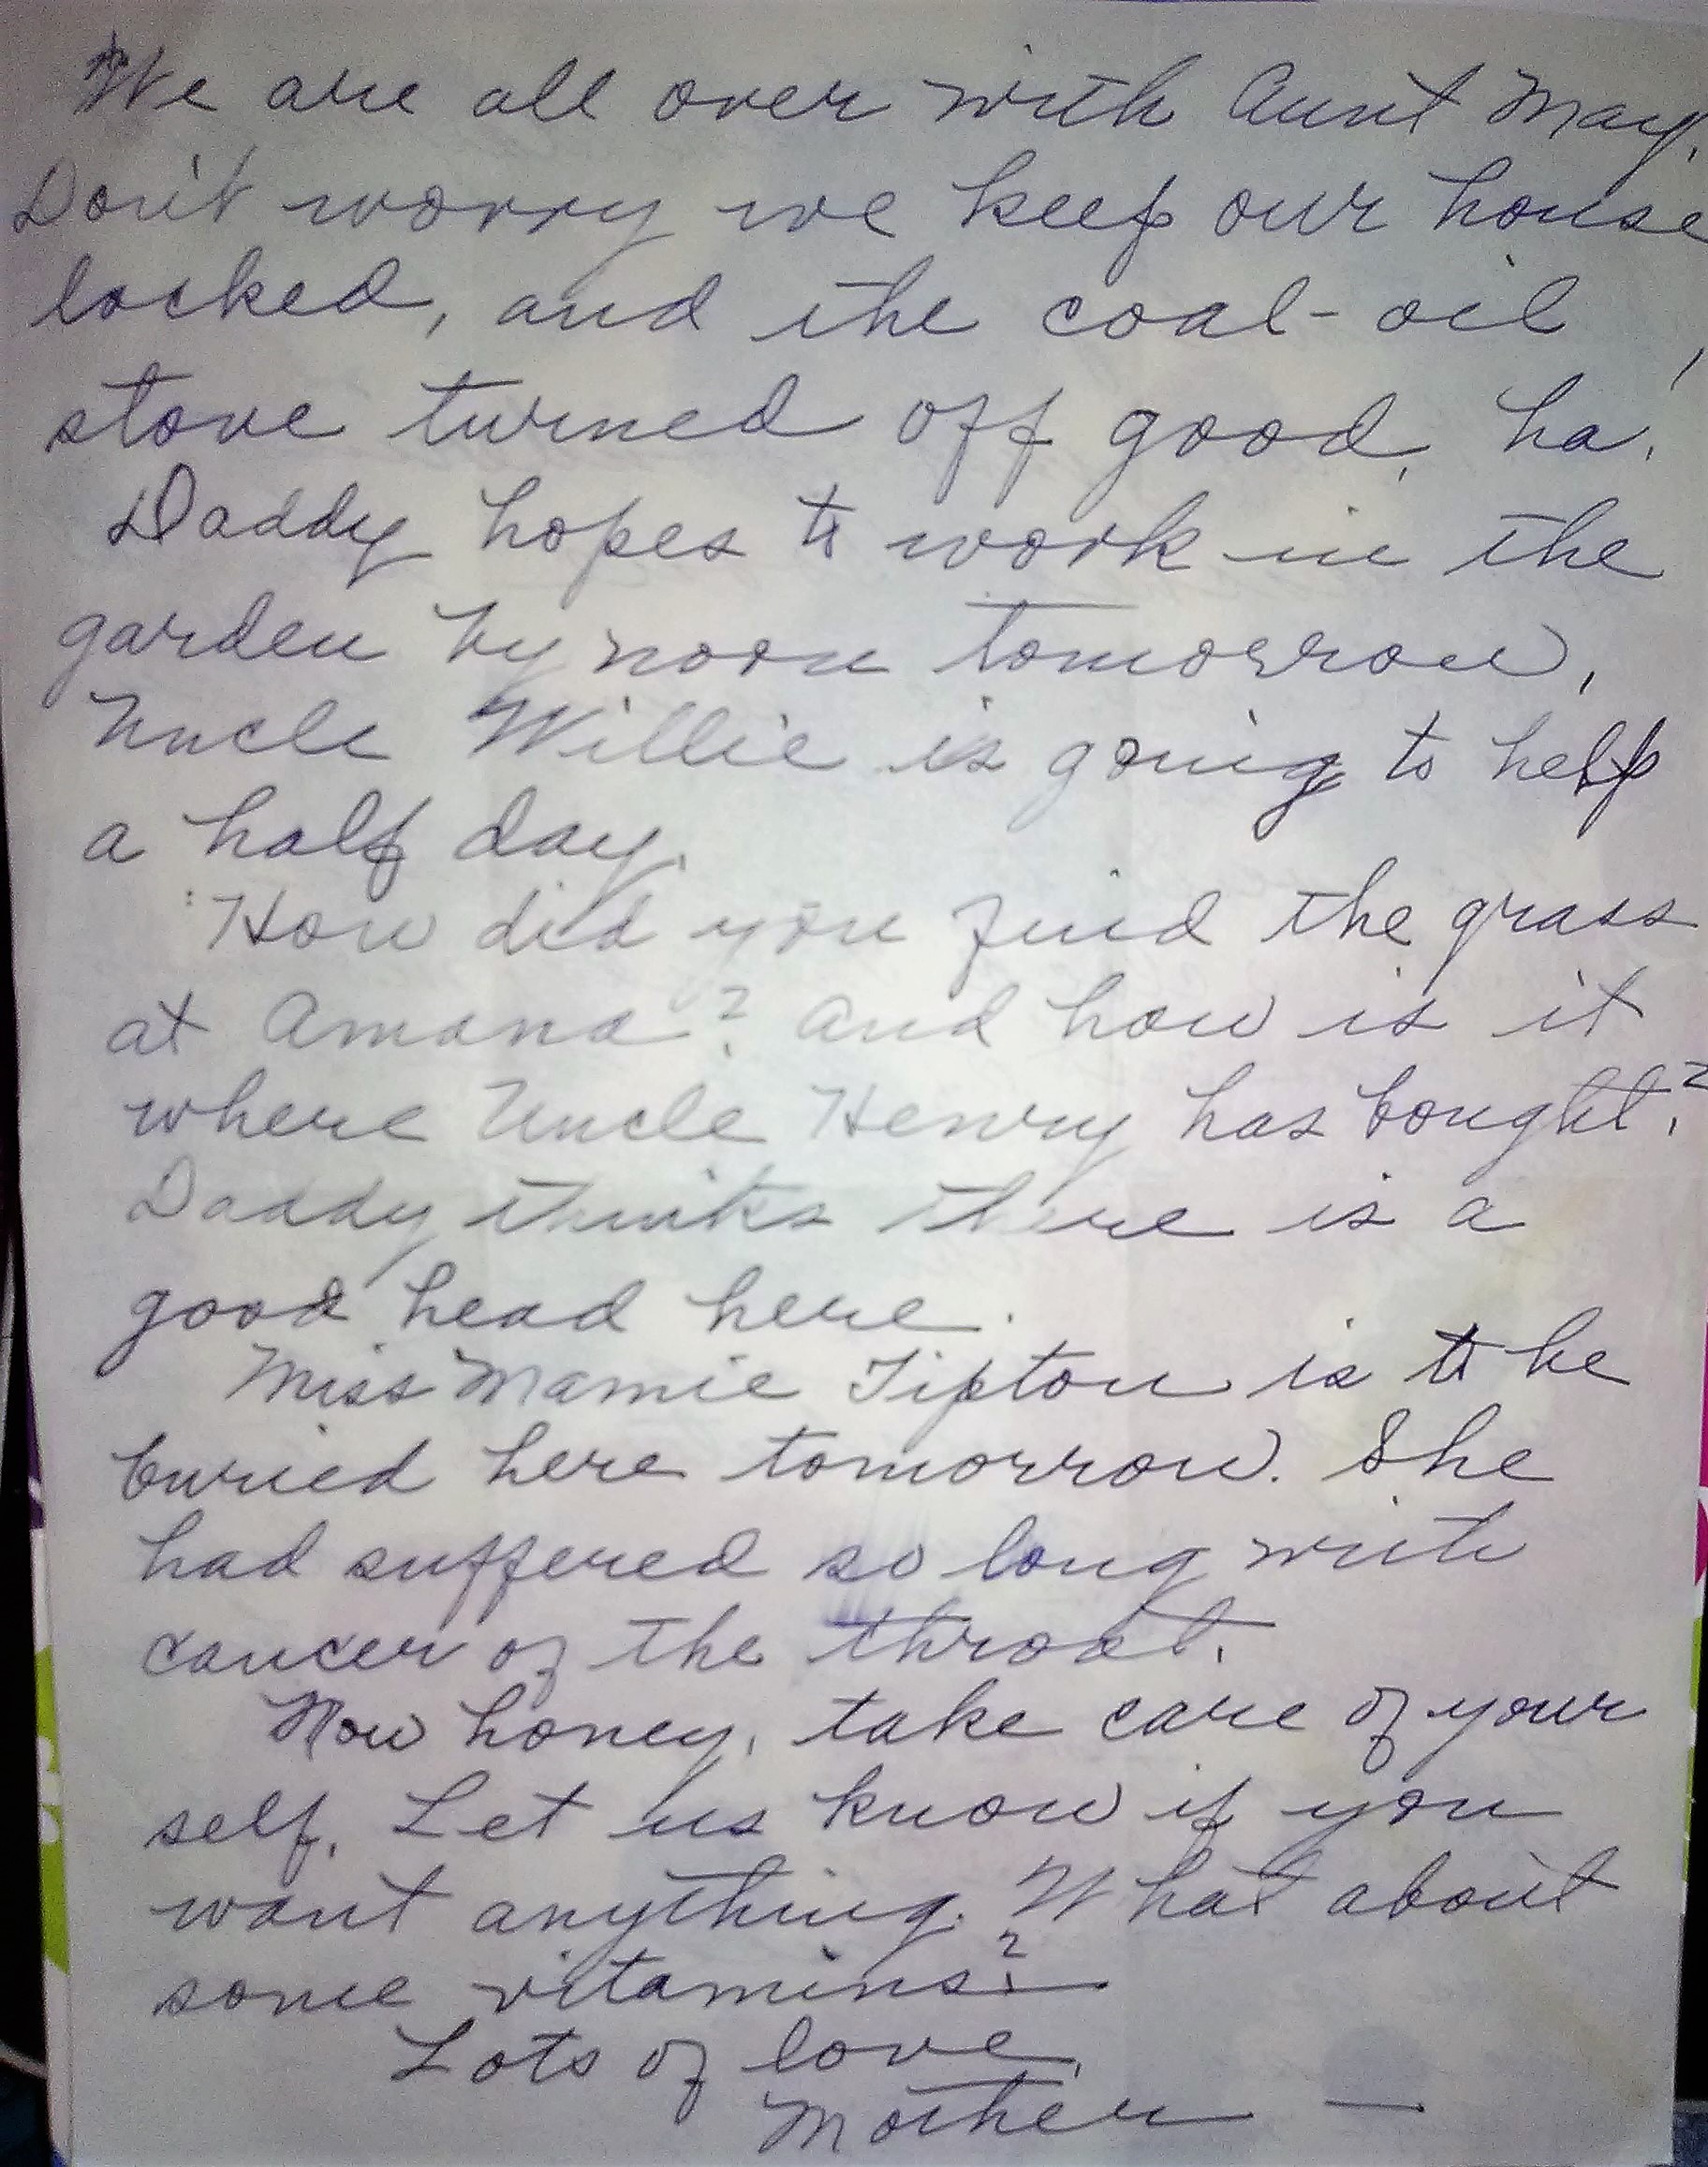 We are all over with Aunt May.
Don't worry we keep our house
locked, and the coal-oil
stove turned off good, ha!
Daddy hopes to work in the
garden by noon tomorrow,
Uncle Willie is going to help
a half day.
How did you find the grass
at Amana? And how is it
where Uncle Henry has bought?
Daddy thinks there is a
good head here.
Miss Mamie Tipton is to be
buried here tomorrow. She
had suffered so long with
cancer of the throat.
Now honey, take care of your
self. Let us know if you
want anything. What about
some vitamins?
Lots of love,
Mother —